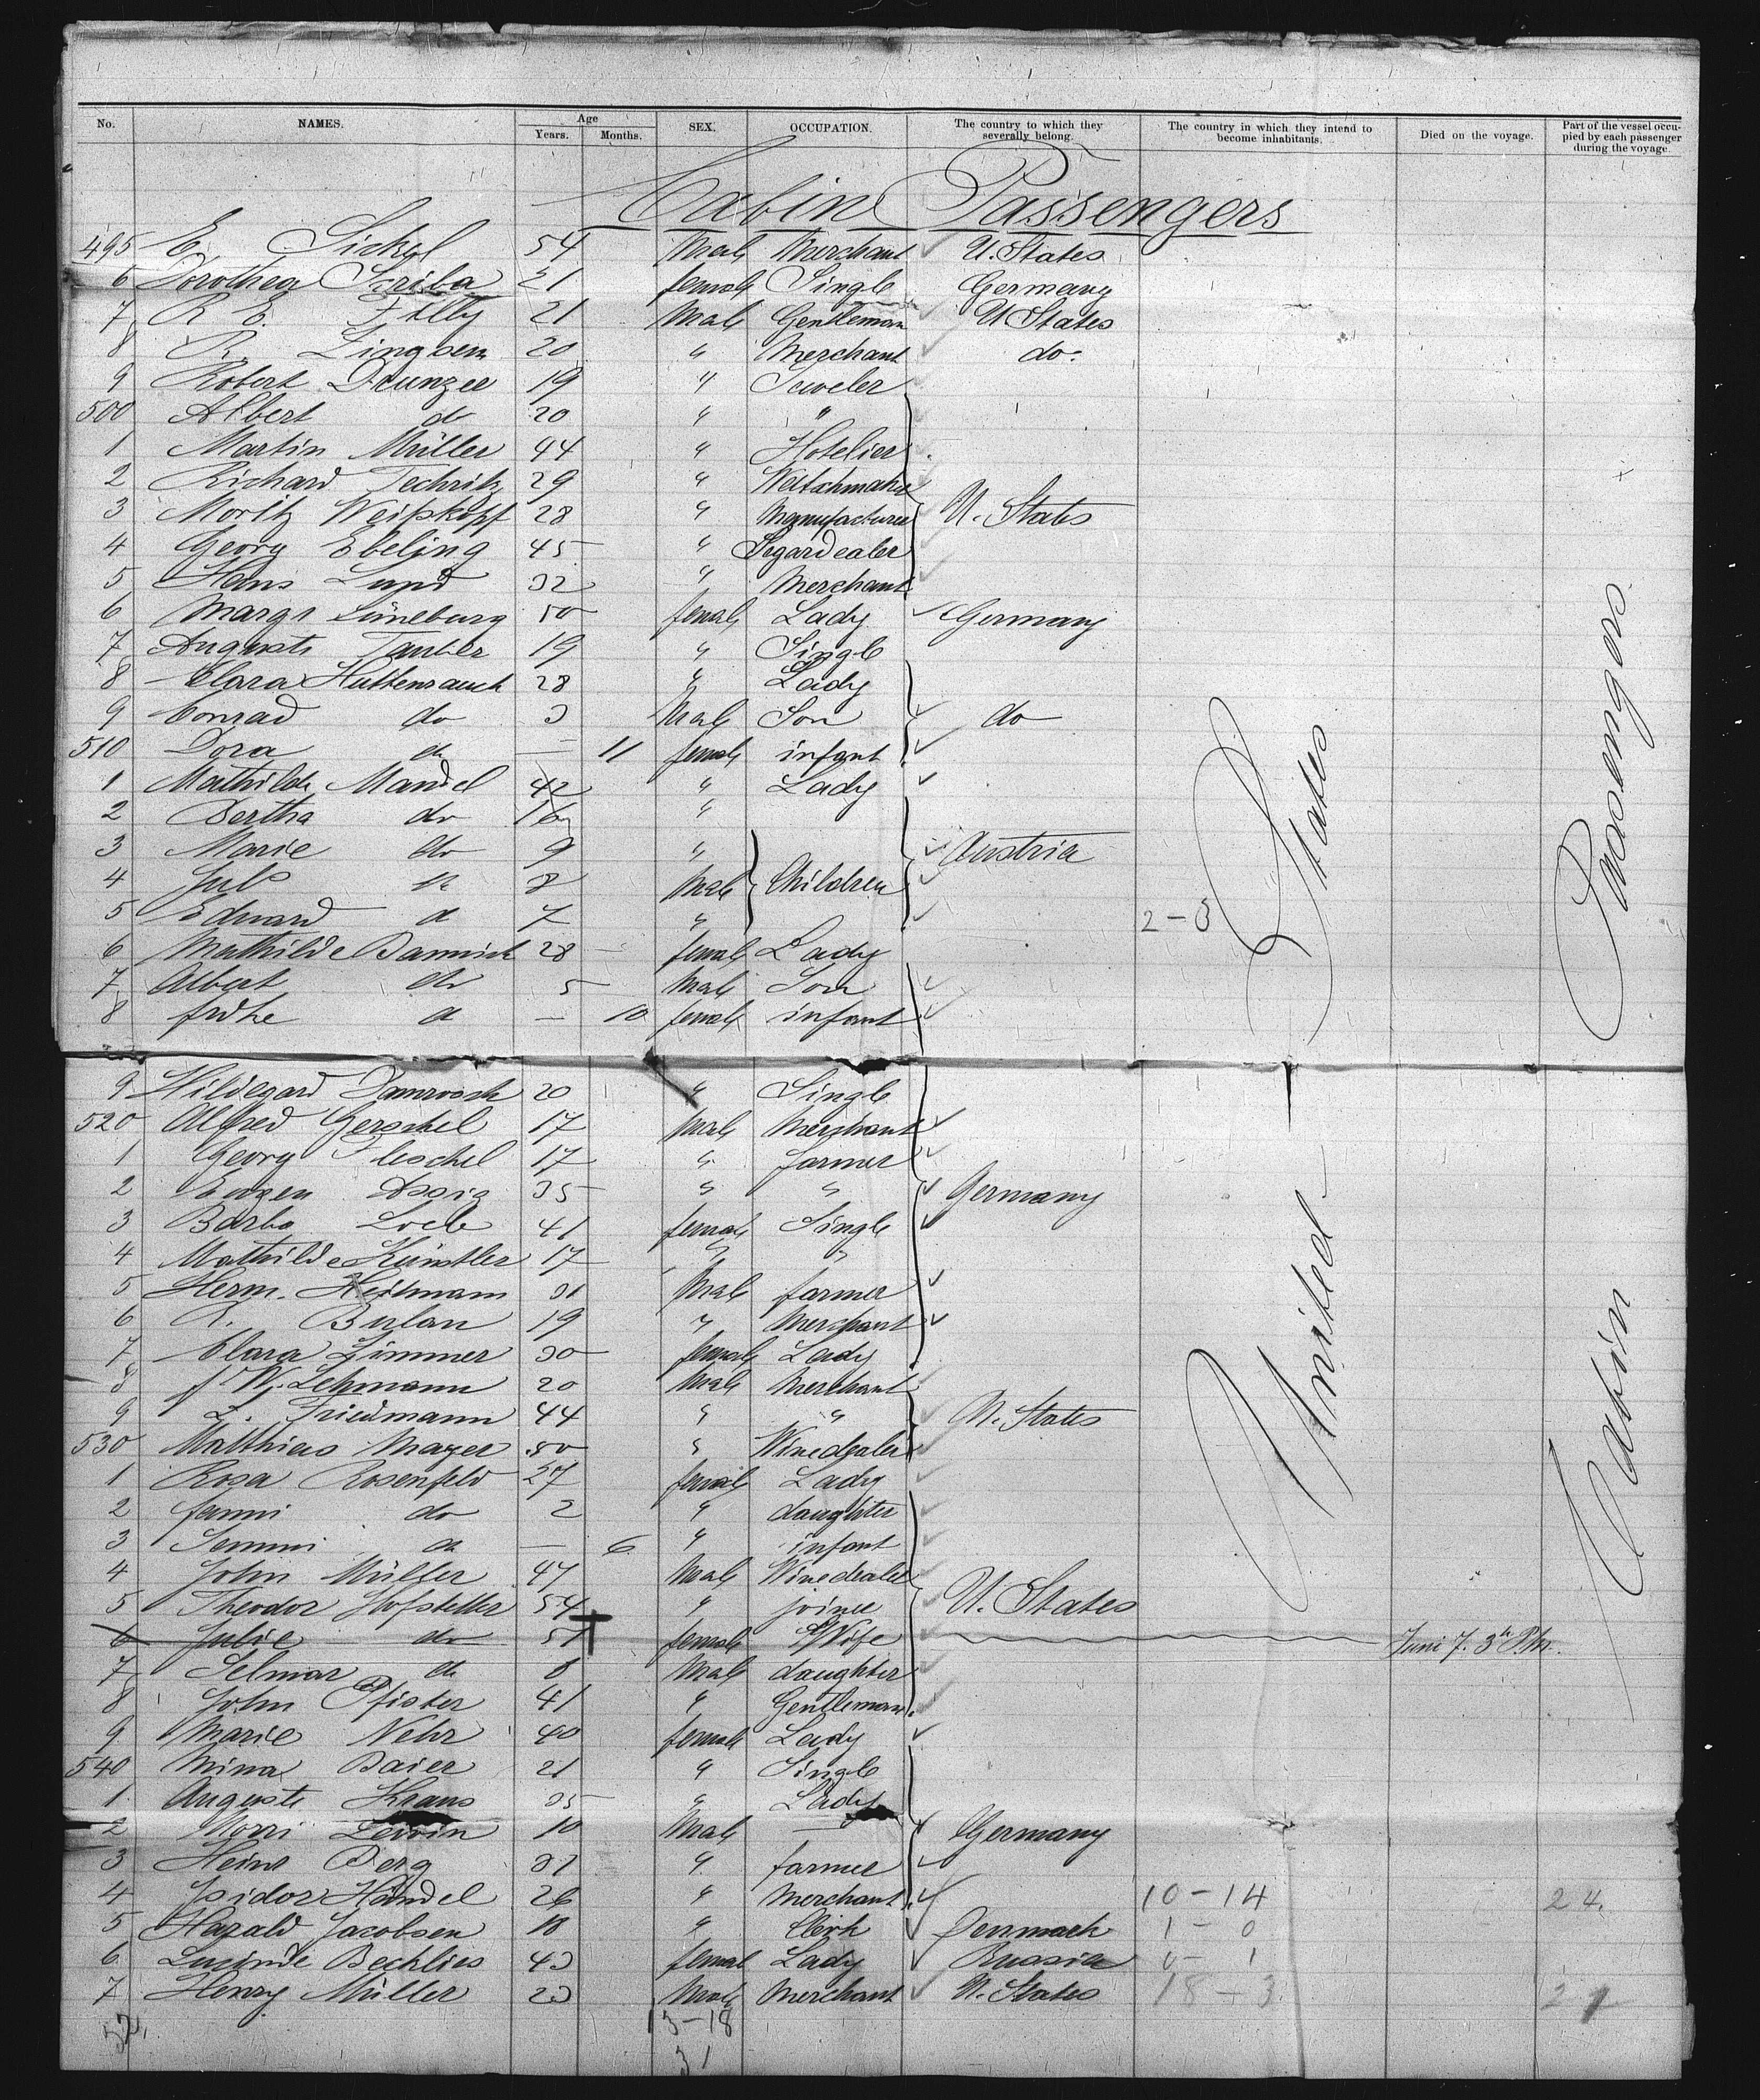 No. NAMES. Age Years. Months. SEX. OCCUPATION. The country to which they severally belong. The country in which they intend to become inhabitants. Died on the voyage. Part of the vessel occupied by each passenger during the voyage
Cabin Passengers
495 E. Sickel 54 Male Merchant U. States
6 Dorothea Scriba 21 female Single Germany
7 R E. Filly 21 Male Gentleman U States
8 R. Lingsem 20 " Merchant do.
9 Robert Drunzer 19 " Juweler
500 Albert do 20 " "
1 Martin Müller 44 " Hotelier
2 Richard Techritz 29 "
3 Moritz Weißkopf 28 " Manufacturer U. States
4 Georg Ebeling 45 " Segardealer
5 Hans Lund 32 " Merchant
6 Margr Lüneburg 50 female Lady Germany
7 Auguste Tauber 19 " Single
8 Clara Hüttenrauch 28 " Lady
9 Conrad do 3 Male Son do
510 Dora do — 11 female infant
1 Mathilde Mandel 42 " Lady
2 Bertha do 16 "
3 Marie do 9 " Austria
4 Juls do 8 Male Children
5 Eduard do 7 " 2-3
6 Mathilde 28 — female Lady
7 Albert do 5 Male Son
8 do — 10 female infant
9 Hildegard Damrosch 20 " Single
520 Alfred Gerschel 17 Male Merchant
1 Georg Fleschel 17 " farmer
2 Eugen Assig 35 " " Germany
3 Barba Loeb 41 female Single
4 Mathilde Künstler 17 " "
5 Herm. Heilmann 31 Male farmer
6 R. Burlan 19 " Merchant
7 Clara Zimmer 30 female Lady
8 W. Lehmann 20 Male Merchant
9 L. Friedmann 44 " " U. States
530 Matthias Mayer 50 " Winedealer
1 Rosa Rosenfeld 27 female Lady
2 fanni do 2 " daughter
3 Semmi do — 6 " infant
4 John Müller 47 Male Winedealer
5 Theodor Hofstetter 54 " joiner U. States
6 Julie do 51 female Wife Juni 7. 3h P.M.
7 Selmar do 8 Male daughter
8 John Pfister 41 " Gentleman
9 Marie Nehr 40 female Lady
540 Mina Baier 21 " Single
1 Auguste Kraus 35 " Lady
2 Morri Lewin 10 Male — Germany
3 Heinr Berg 31 " farmer
4 Isidor Händel 26 " Merchant 10-14 24.
5 Harald Jacobsen 18 " Clerk Denmark 1-0
6 Lucinde Bechlies 43 female Lady Russia 0-1
7 Henry Müller 23 Male Merchant U. States 18-3 21
52, 13-18
31
United States
Cabin Passengers.